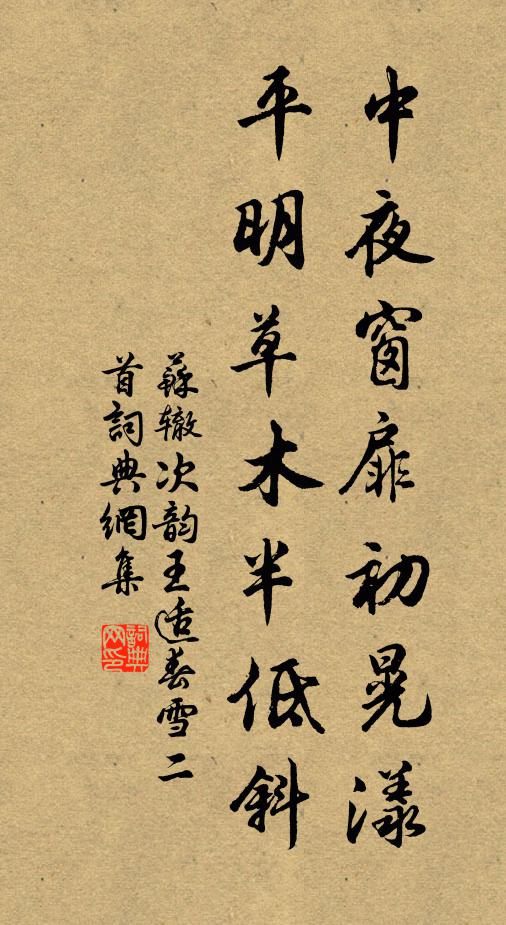 中夜窗扉初晃漾
平明草木半低斜
蘇轍次韵王适春雪二
首詞典網集
詞典网印